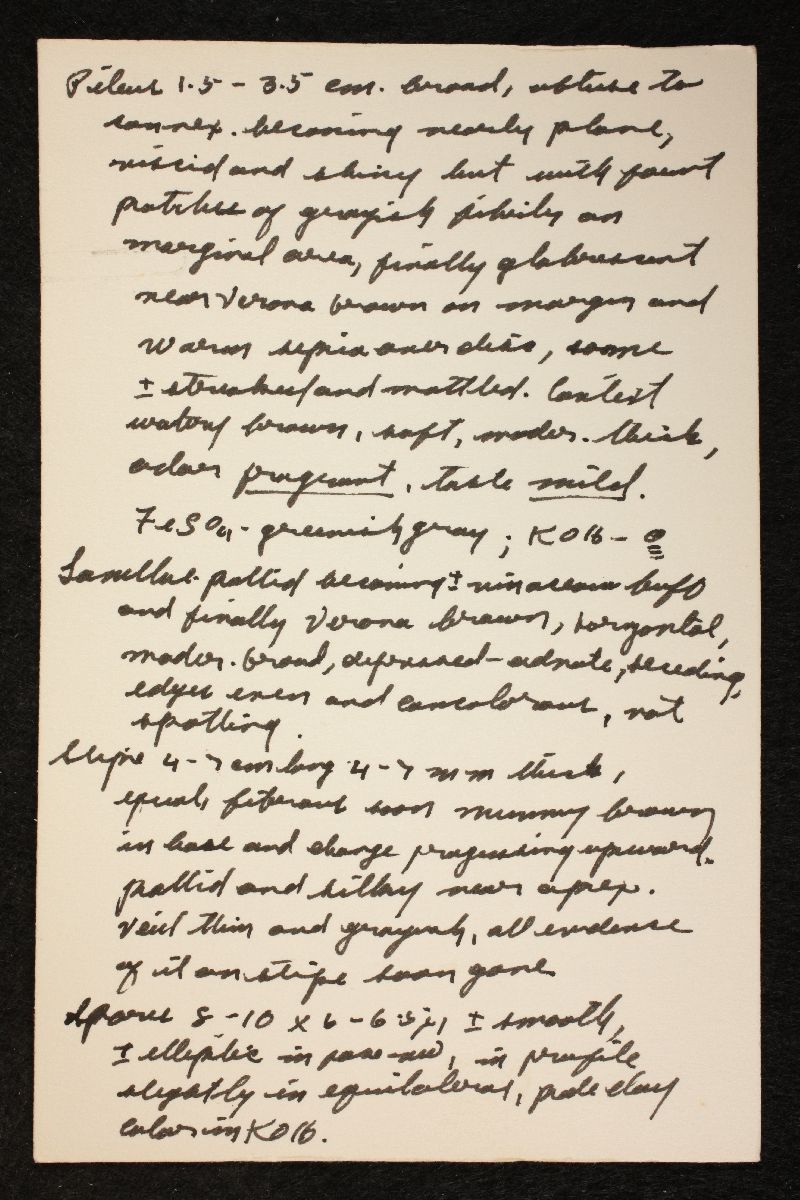 Pileus 1.5 - 3.5 cm. broad, obtuse to
convex. becoming nearly plane,
viscid and shiny but with faint
patches of grayish fibrils on
marginal area, finally glabrescent
near Verona brown on margin and
warm sepia over disc, some
± streaked and mottled. Context
watery brown, soft, moder. thick,
odor fragrant, taste mild.
FeSO4 - greenish gray; KOH - 0
Lamellae pallid becoming ± vinaceous buff
and finally Verona brown, horizontal,
moder. broad, depressed-adnate, seceding,
edges even and concolorous, not
spotting.
Stipe 4-7 cm long 4-7 mm thick,
equal, fibrous soon mummy brown
in base and change progressing upward.
pallid and silky near apex.
Veil thin and grayish, all evidence
of it on stipe soon gone
Spores 8-10 x 6-6.5 µ, ± smooth,
± elliptic in face-view, in profile
slightly inequilateral, pale clay
color in KOH.